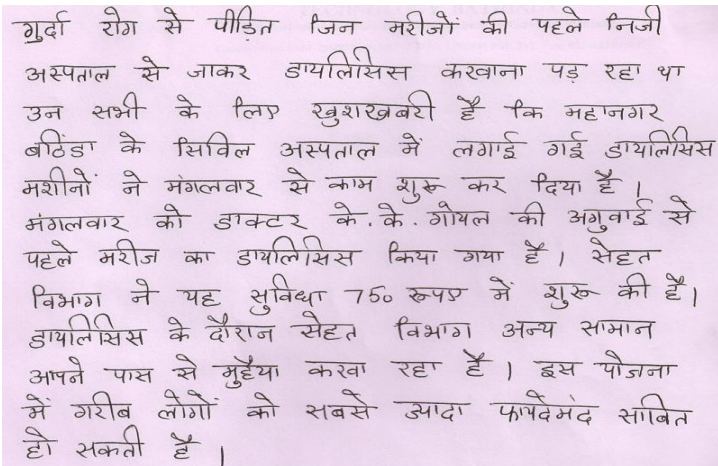 गुर्दा रोग से पीड़ित जिन मरीजों की पहले निजी
अस्पताल से जाकर डायलिसिस करवाना पड़ रहा था
उन सभी के लिए खुशखबरी है कि महानगर
बठिंडा के सिविल अस्पताल में लगाई गई डायलिसिस
मशीनों ने मंगलवार से काम शुरू कर दिया है।
मंगलवार को डाक्टर के.के. गोयल की अगुवाई से
पहले मरीज का डायलिसिस किया गया है। सेहत
विभाग ने यह सुविधा 750 रूपए में शुरू की है।
डायलिसिस के दौरान सेहत विभाग अन्य सामान
आपने पास से मुहैया करवा रहा है। इस योजना
में गरीब लोगों को सबसे ज्यादा फायदेमंद साबित
हो सकती है।